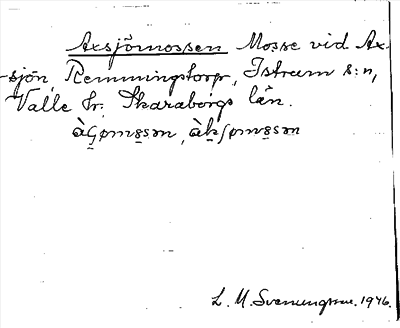 Axsjömossen Mosse vid Ax-
sjön, Remmingstorp, Istrum s:n,
Valle hr. Skaraborgs län.
L. M. Svenungsson. 1946.